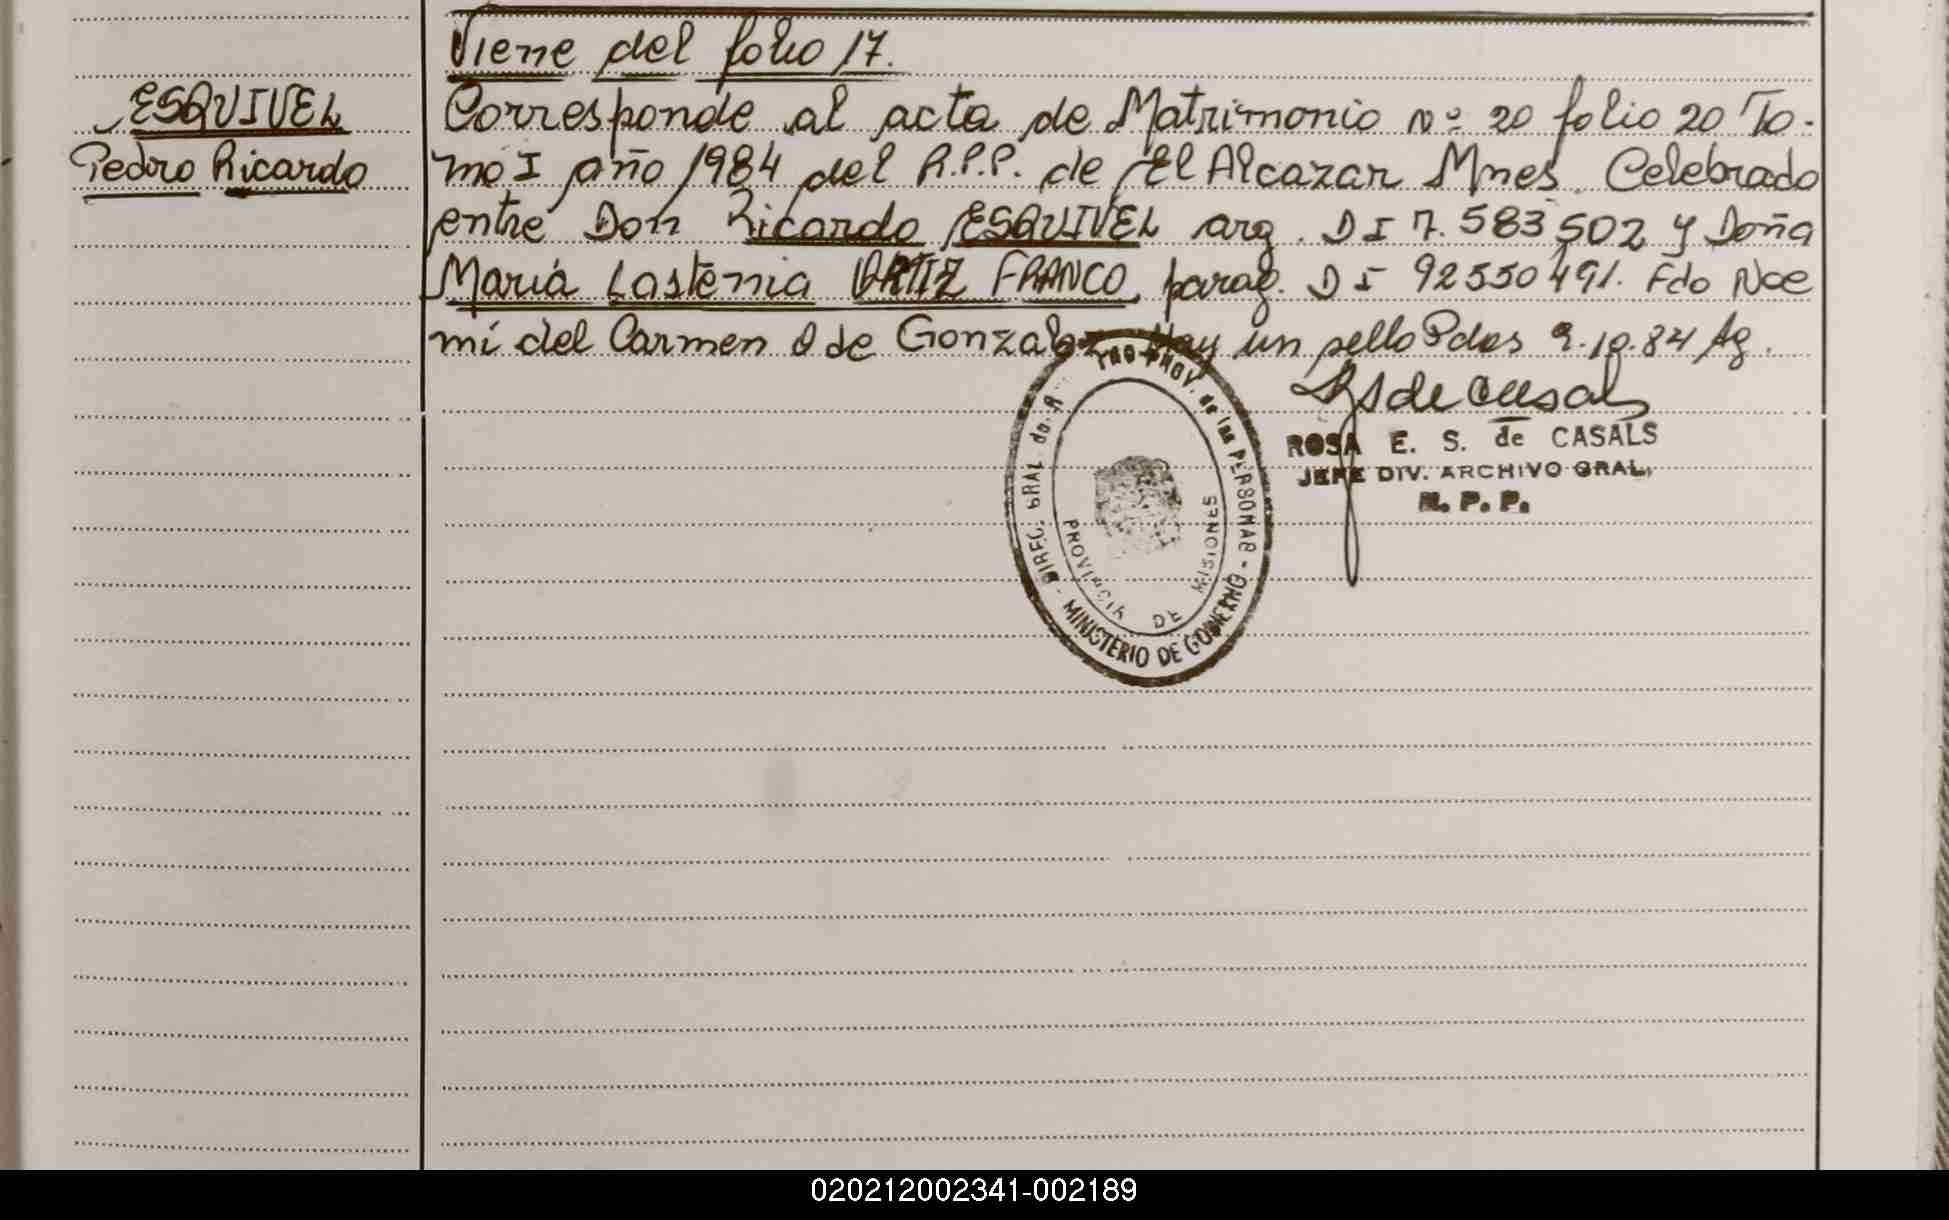 Viene del folio 17.
ESQUIVEL
Pedro Ricardo
Corresponde al acta de Matrimonio Nº 20 folio 20 To-
mo I año 1984 del R.P.P. de El Alcazar Mnes. Celebrado
entre Don Ricardo ESQUIVEL arg. D I 7.583502 y Doña
María Lastenia ORTIZ FRANCO, parag. D I 92550491. Fdo Noe
mí del Carmen O de Gonzalez Hay un sello Pdas 9.10.84 Ag.
ROSA E. S. de CASALS
JEFE DIV. ARCHIVO GRAL,
R. P. P.
DIREC. GRAL de. R TRO PROV. de las PERSONAS - MINISTERIO DE GOBIERNO -
PROVINCIA DE MISIONES
020212002341-002189